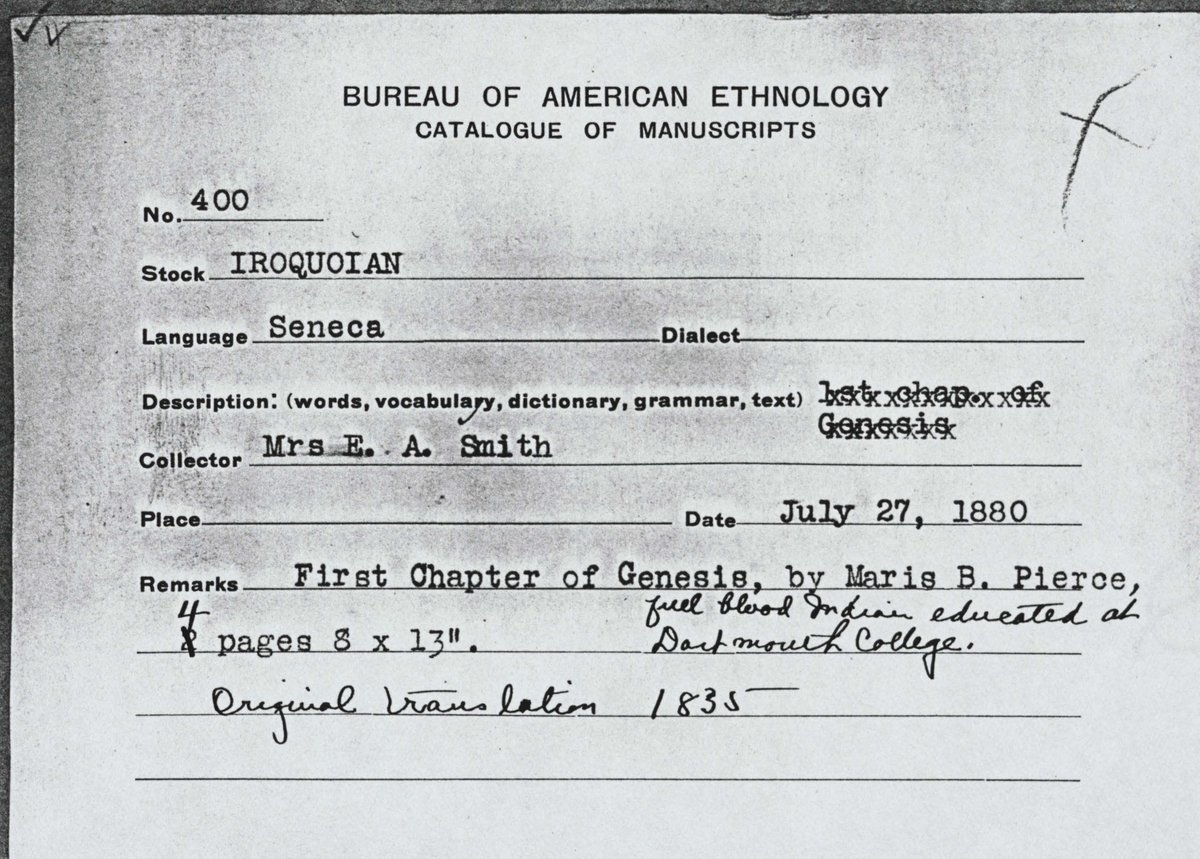 BUREAU OF AMERICAN ETHNOLOGY
CATALOGUE OF MANUSCRIPTS
No. 400
Stock IROQUOIAN
Language Seneca Dialect
Description: (words, vocabulary, dictionary, grammar, text) 1st chap. of
Genesis
Collector Mrs E. A. Smith
Place Date July 27, 1880
Remarks First Chapter of Genesis, by Maris B. Pierce,
full blood Indian educated at
4 pages 8 x 13". Dartmouth College.
Original translation 1835